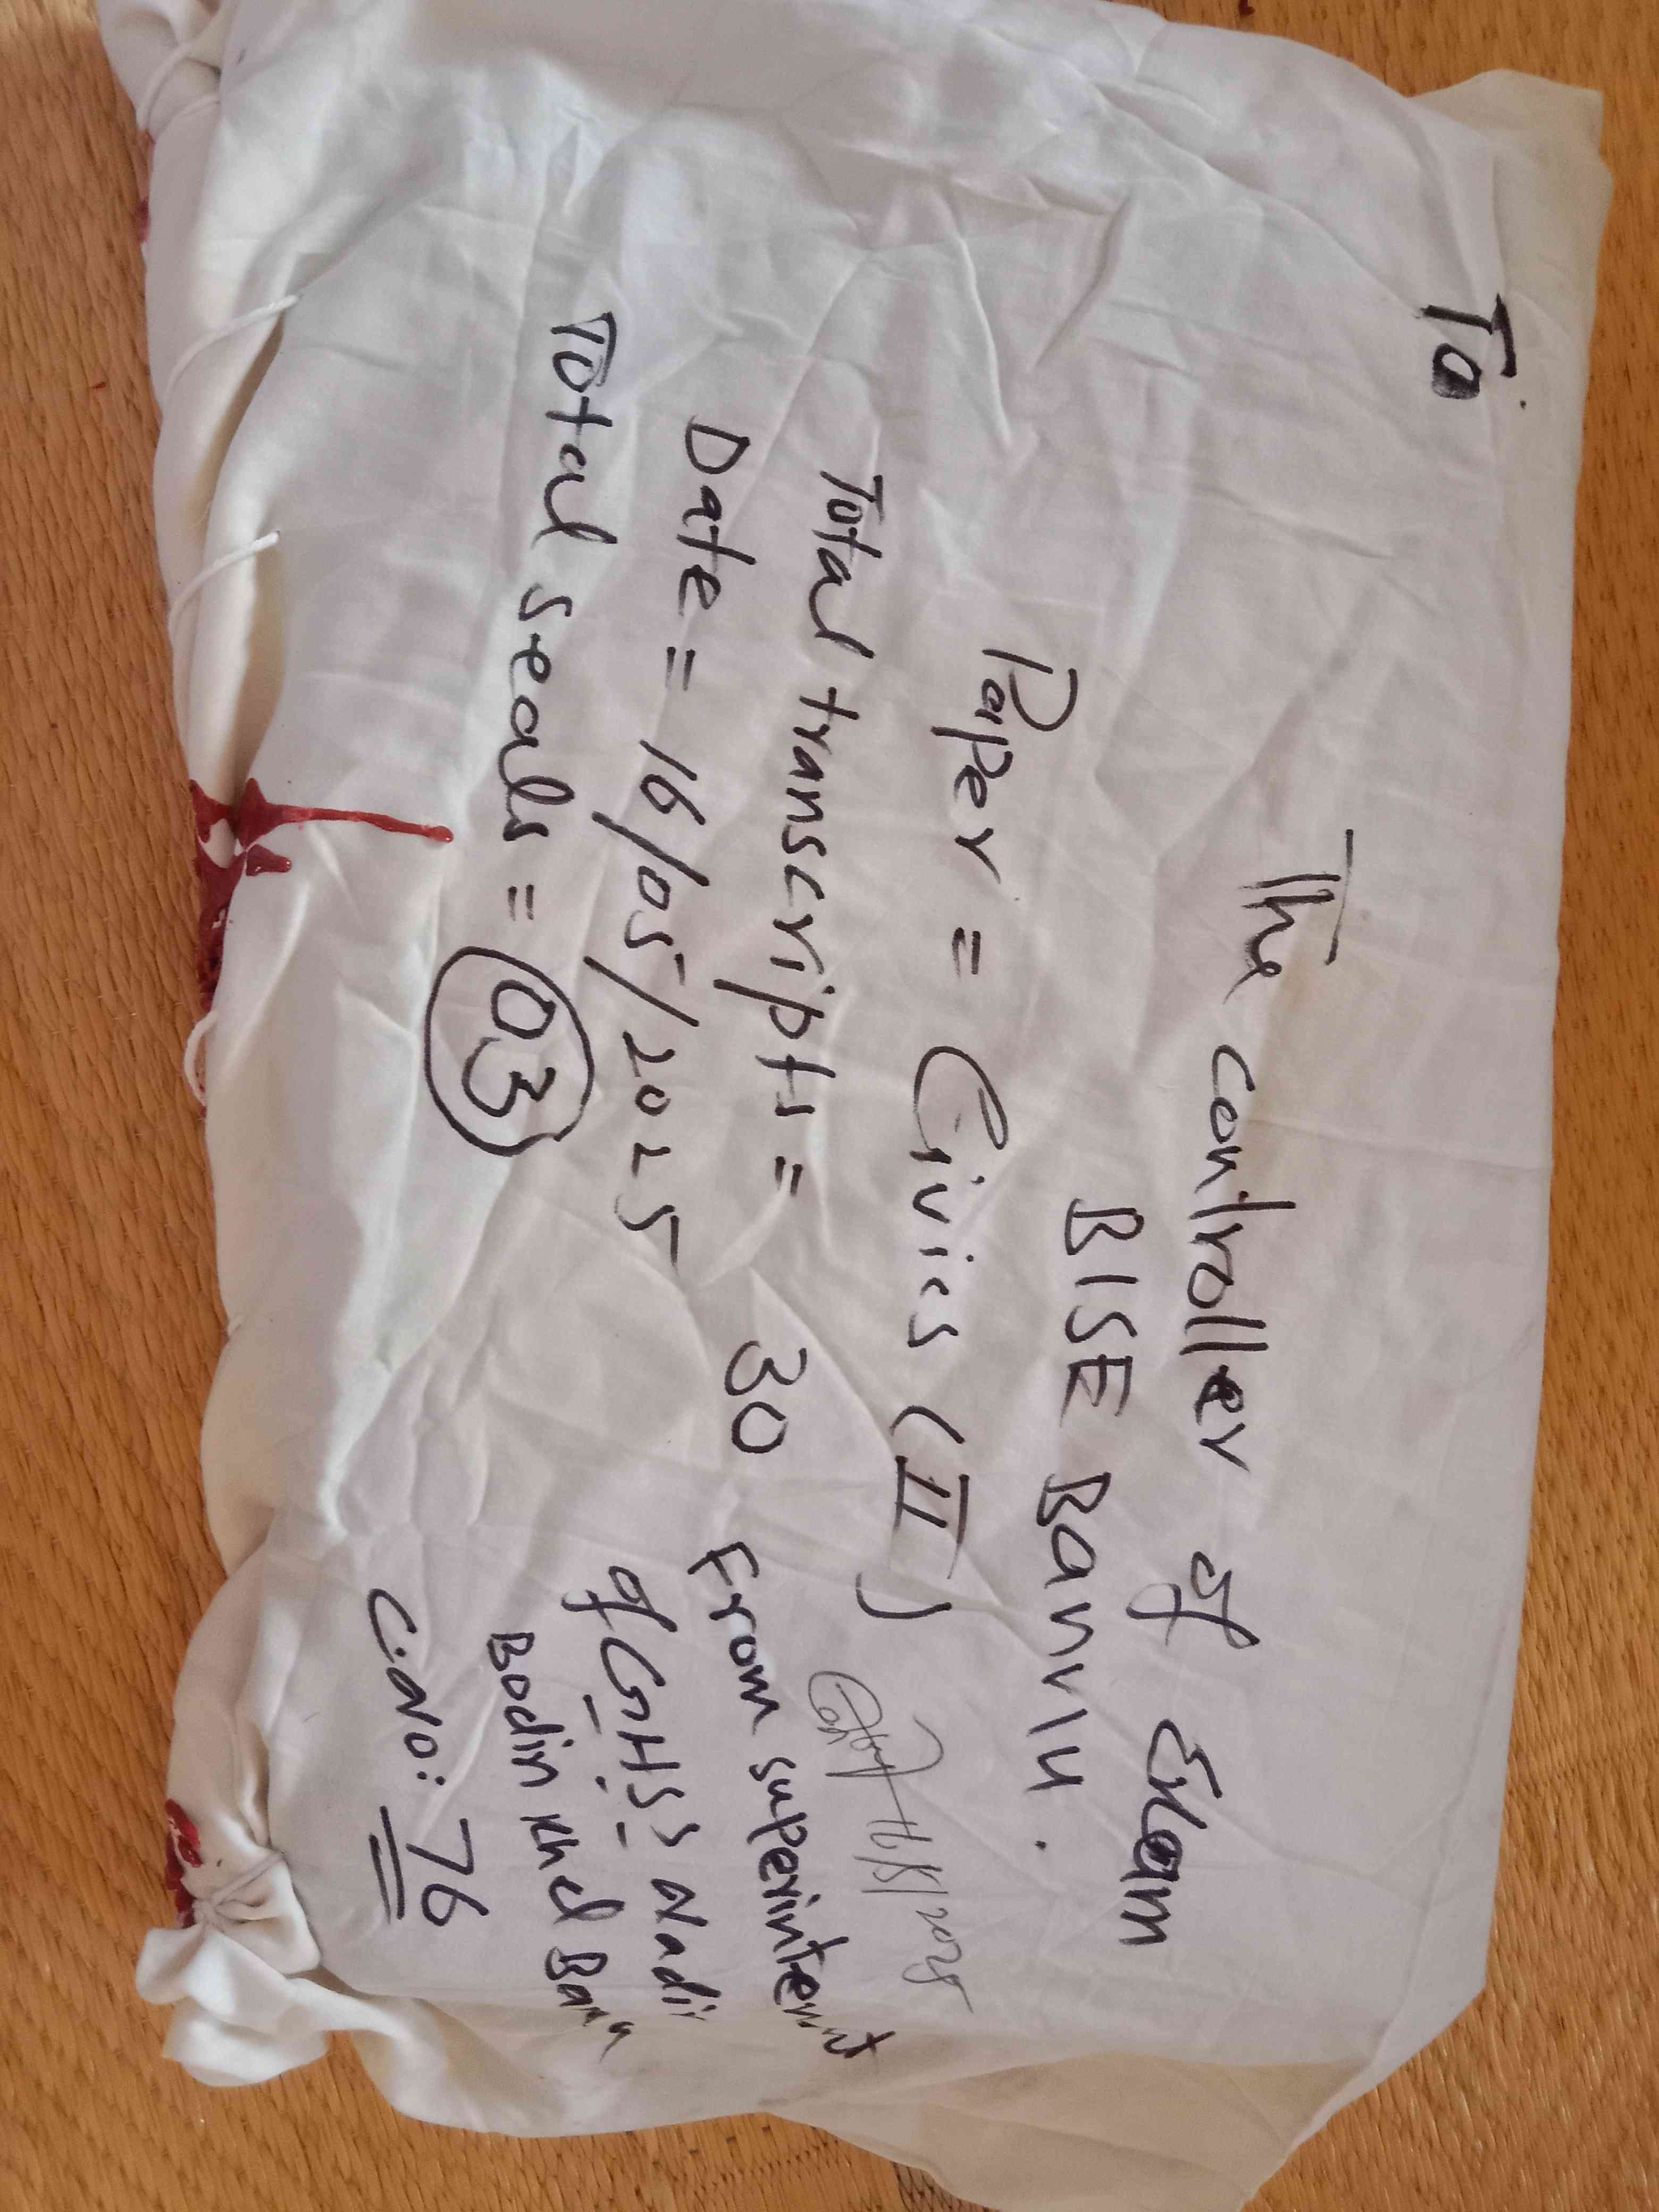 To
The controller of Exam
BISE Bannu.
Paper = Civics (II)
Total transcripts = 30
Date = 16/05/2025
Total seals = 03
16/5/2025
From superintendent
of GHSS Nadir
Bodin Khel Bannu
C.NO: 76